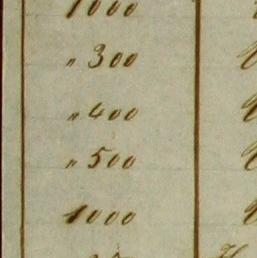 1000
" 300
" 400
" 500
1000